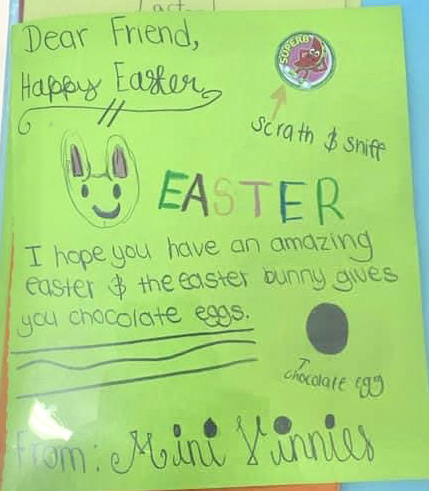 Dear Friend,
Happy Easter
SUPERB
scrath & sniff
EASTER
I hope you have an amazing
easter & the easter bunny gives
you chocolate eggs.
chocolate egg
From: Mini Vinnies